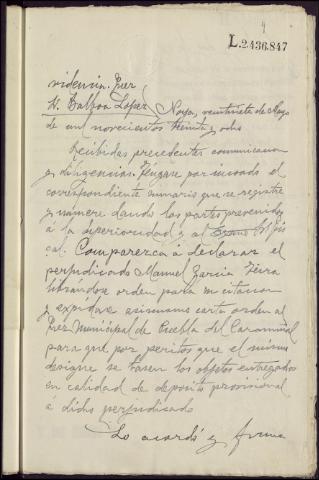 4
L.2436.847
videncia. Juez
Sr. Balboa López Noya, veintisiete de Mayo
de mil novecientos treinta y ocho
Recibidas precedentes comunicacion
y diligencias. Téngase por incoado el
correspondiente sumario que se registre
y numere dando los partes prevenidos
a la superioridad y al Fis
cal. Comparezca á declarar el
perjudicado Manuel Garcia Teira
librandose orden para su citacion
y expídase asimismo carta orden al
Juez Municipal de Puebla del Caramiñal
para que por peritos que el mismo
designe se tasen los objetos entregados
en calidad de depósito provisional
á dicho perjudicado
Lo acordó y firma